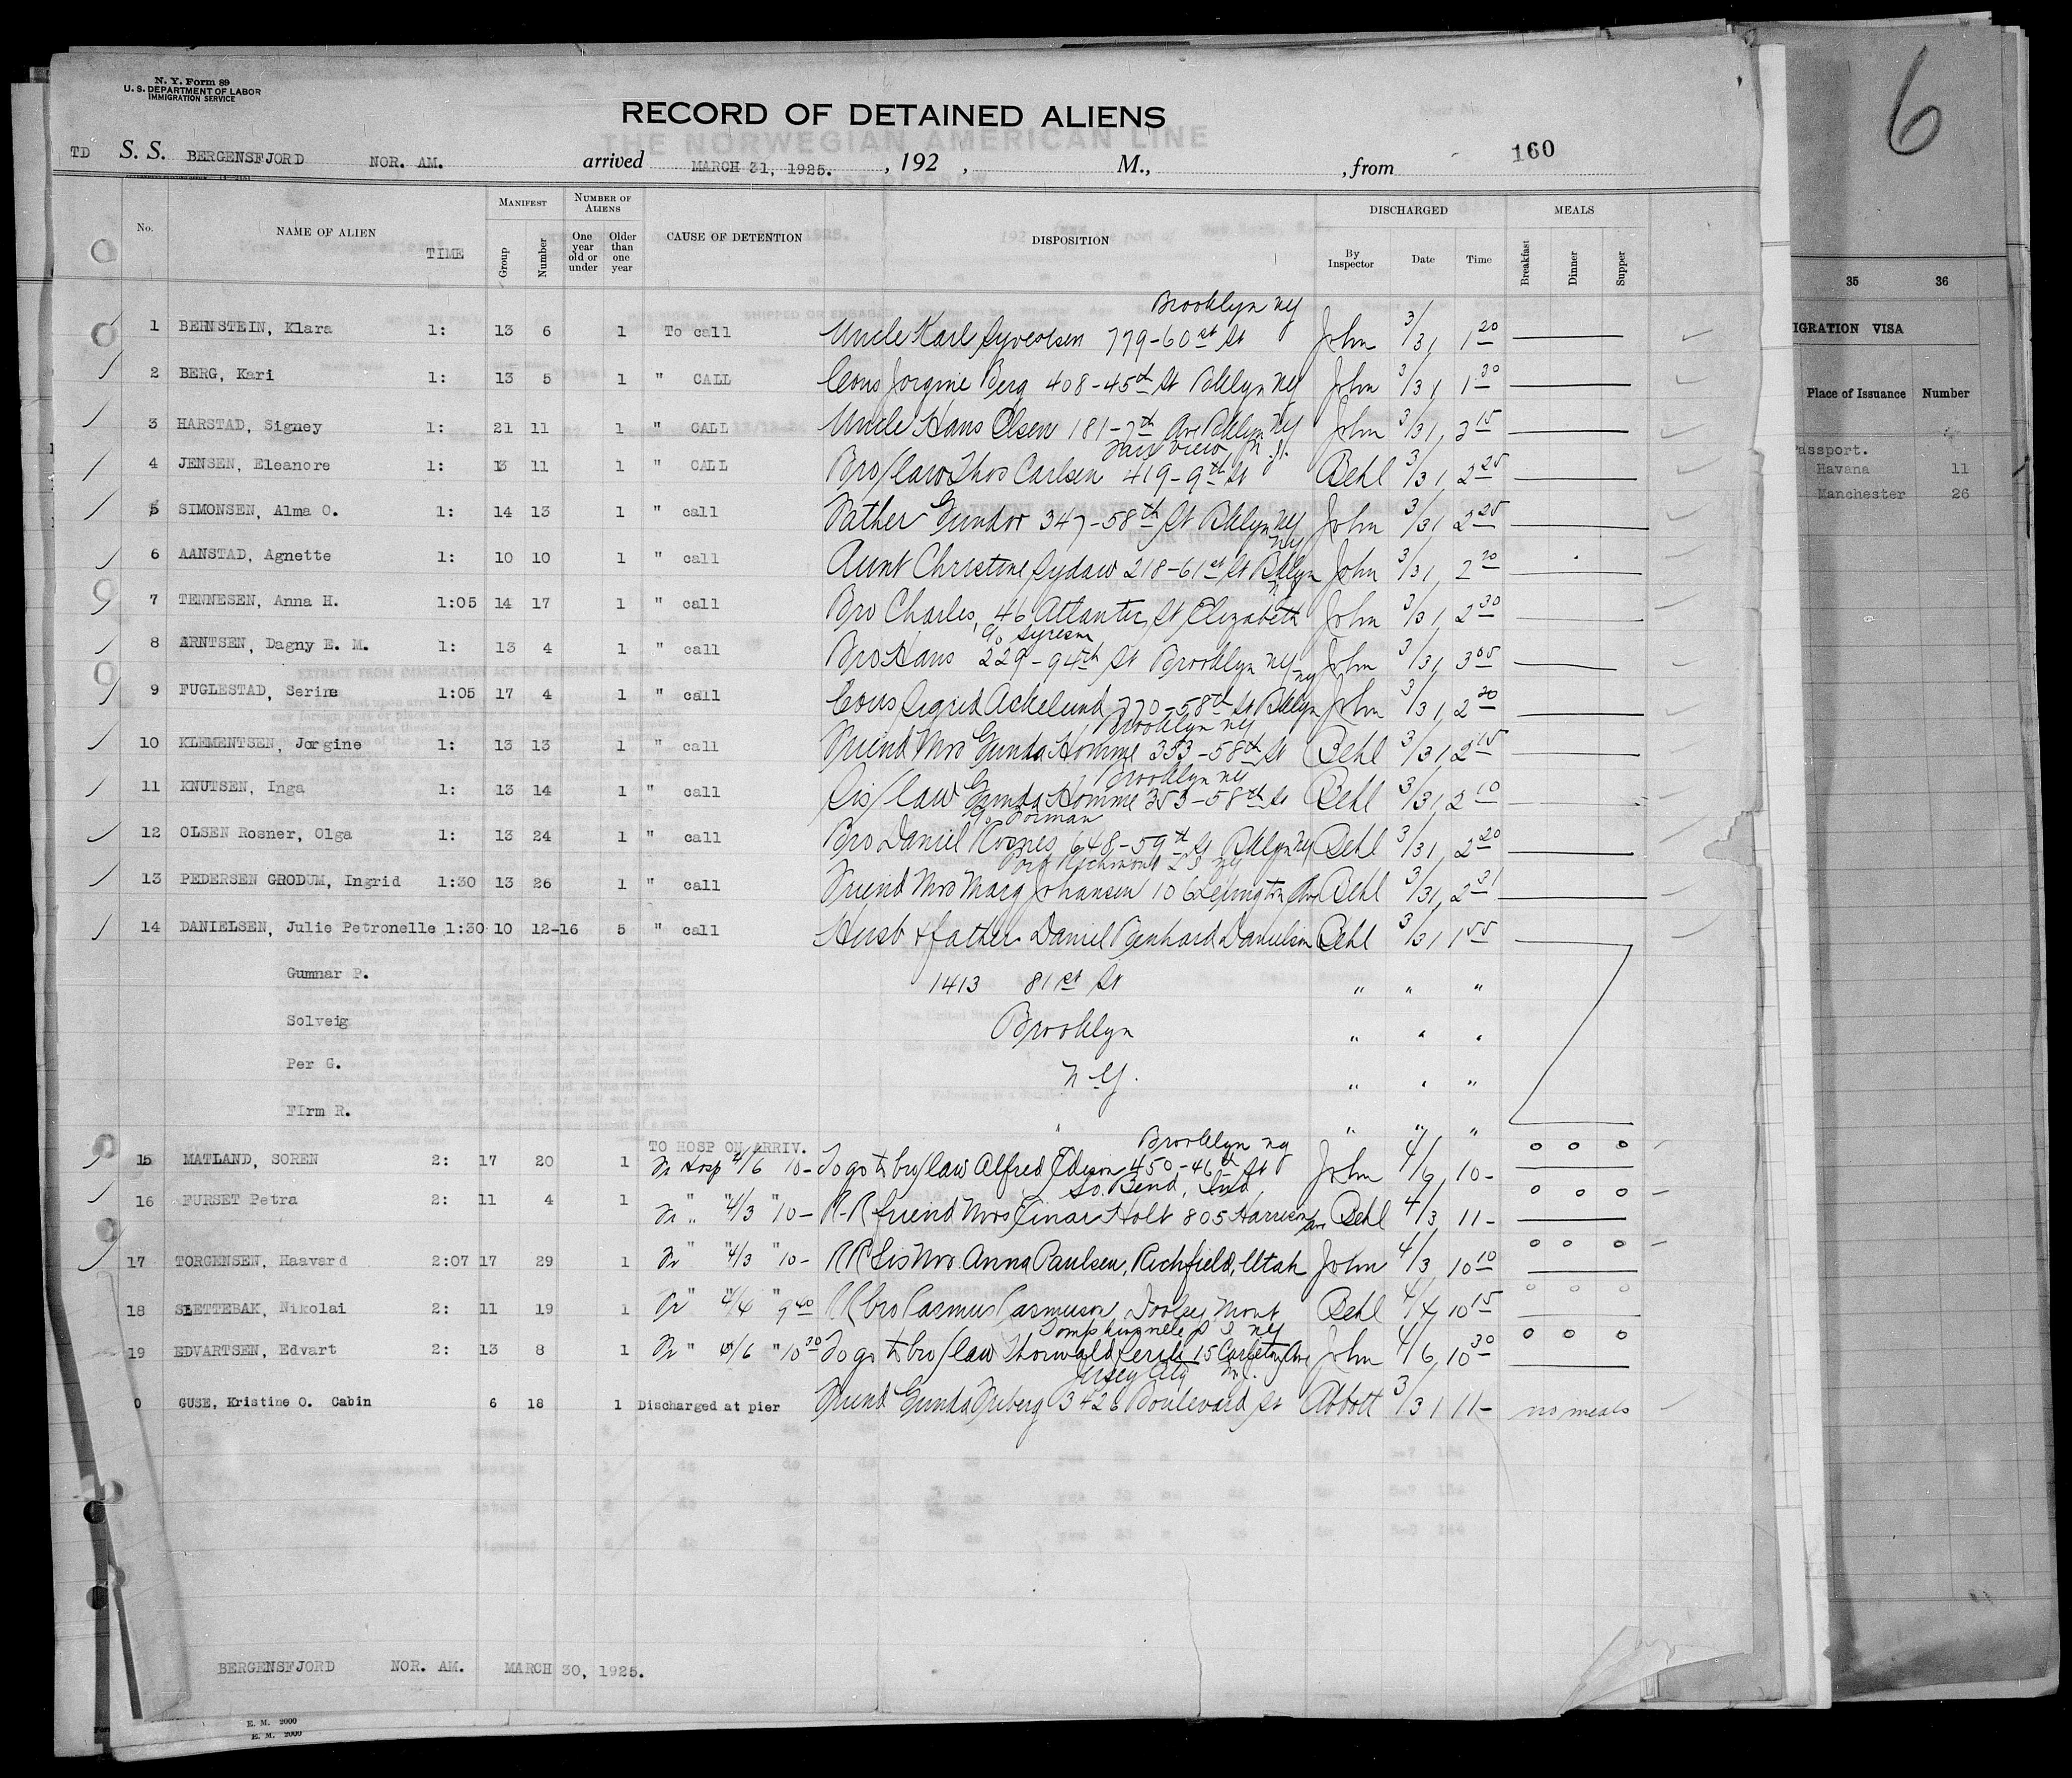 N. Y. Form 89
U. S. DEPARTMENT OF LABOR
IMMIGRATION SERVICE
RECORD OF DETAINED ALIENS
TD S. S. BERGENSFJORD NOR. AM. arrived MARCH 31, 1925. , 192 , M., , from 160
No. NAME OF ALIEN TIME MANIFEST Group Number NUMBER OF ALIENS One year old or under Older than one year CAUSE OF DETENTION DISPOSITION DISCHARGED By Inspector Date Time MEALS Breakfast Dinner Supper
Brooklyn NY
1 BERNSTEIN, Klara 1: 13 6 1 To call Uncle Karl Syvertsen 779-60st St John 3/31 1 20
2 BERG, Kari 1: 13 5 1 " CALL Cous Jorgine Berg 408-45th St Bklyn NY John 3/31 1 30
3 HARSTAD, Signey 1: 21 11 1 " CALL Uncle Hans Olsen 181-7th Ave Bklyn NY John 3/31, 2 15
Fair View, N.J.
4 JENSEN, Eleanore 1: 13 11 1 " CALL Bro/law Thos Carlsen 419-9th St Behl 3/31 2 25
5 SIMONSEN, Alma O. 1: 14 13 1 " call Father Gundor 347-58th St Bklyn NY John 3/31 2 25
NY
6 AANSTAD, Agnette 1: 10 10 1 " call Aunt Christine Sydow 218-61st St Bklyn John 3/31, 2 20
7 TENNESEN, Anna H. 1:05 14 17 1 " call Bro Charles, 46 Atlantic St Elizabeth John 3/31 2 30
8 ARNTSEN, Dagny E. M. 1: 13 4 1 " call Bro Hans 229-94th St Brooklyn NY John 3/31, 3 05
NY
9 FUGLESTAD, Serine 1:05 17 4 1 " call Cous Sigrid Ackelund 770-58th St Bklyn John 3/31, 2 20
Brooklyn NY
10 KLEMENTSEN, Jorgine 1: 13 13 1 " call Friend Mrs Gunda Homme 353-58th St Behl 3/31 2 15
Brooklyn NY
11 KNUTSEN, Inga 1: 13 14 1 " call Sis/law Gunda Homme 353-58th St Behl 3/31, 2 10
c/o Forman
12 OLSEN Rosner, Olga 1: 13 24 1 " call Bro Daniel Rosnes 648-59th St Bklyn NY Behl 3/31, 2 20
Port Richmond S I NY
13 PEDERSEN GRODUM, Ingrid 1:30 13 26 1 " call Friend Mrs Marg Johansen 106 Lexington Ave Behl 3/31, 2 31
14 DANIELSEN, Julie Petronelle 1:30 10 12-16 5 " call Husb & father Daniel Bernhard Danielson Behl 3/31 1 55
Gunnar P. 1413 81st St " " "
Solveig Brooklyn " " "
Per G. N.Y. " " "
FIrm R. " " "
TO HOSP ON ARRIV. Brooklyn NY
15 MATLAND, SOREN 2: 17 20 1 Fr Hosp 4/6 10- To go to bro/law Alfred Edison 450-46th St John 4/6, 10- 0 0 0
So. Bend, Ind.
16 FURSET Petra 2: 11 4 1 Fr " " 4/3 " 10- R-R friend Mrs Einar Holt 805 Harrison Ave Behl 4/3 11- 0 0 0
17 TORGENSEN, Haavard 2:07 17 29 1 Fr " " 4/3 " 10- RR Sis Mrs. Anna Paulsen, Richfield, Utah John 4/3 10 10 0 0 0
18 SLETTEBAK, Nikolai 2: 11 19 1 Fr " " 4/4 9 40 RR bro Rasmus Rasmuson, Mont Behl 4/4 10 15 0 0 0
Tompkinsville S I NY
19 EDVARTSEN, Edvart 2: 13 8 1 Fr " 4/6 " 10 20 To go to bro/law Thorwald 15 Carleton Ave John 4/6, 10 30 0 0 0
Jersey City N.J.
0 GUSE, Kristine O. Cabin 6 18 1 Discharged at pier Friend Gunda Friberg 3426 Boulevard St Abbott 3/31 11- no meals
BERGENSFJORD NOR. AM. MARCH 30, 1925.
E. M. 2000
E. M. 2000
6
35 36
IGRATION VISA
Place of Issuance Number
assport.
Havana 11
Manchester 26